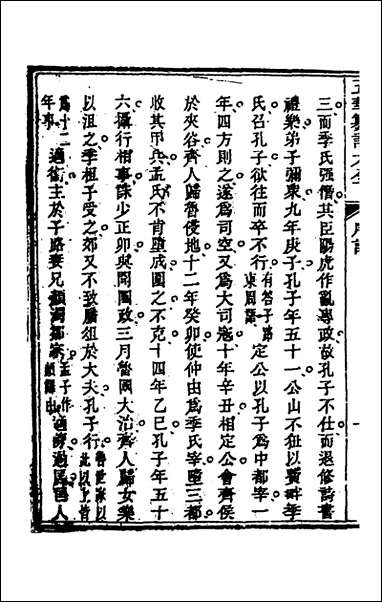 三而季氏强僭其臣陽虎作亂專政故孔子不仕而退修詩書
禮樂弟子彌衆九年庚子孔子年五十一公山不狃以費畔季
氏召孔子欲往而卒不行有答子路東周語定公以孔子爲中都宰一
年四方則之遂爲司空又爲大司寇十年辛丑相定公會齊侯
於夾谷齊人歸魯侵地十二年癸卯使仲由爲季氏宰墮三都
收其甲兵孟氏不肯墮成圍之不克十四年乙巳孔子年五十
六攝行相事誅少正卯與聞國政三月魯國大治齊人歸女樂
以沮之季桓子受之郊又不致膰俎於大夫孔子行魯世家以此以上皆
爲十二年事適衛主於子路妻兄顏濁鄒家孟子作適陳過匡匡人